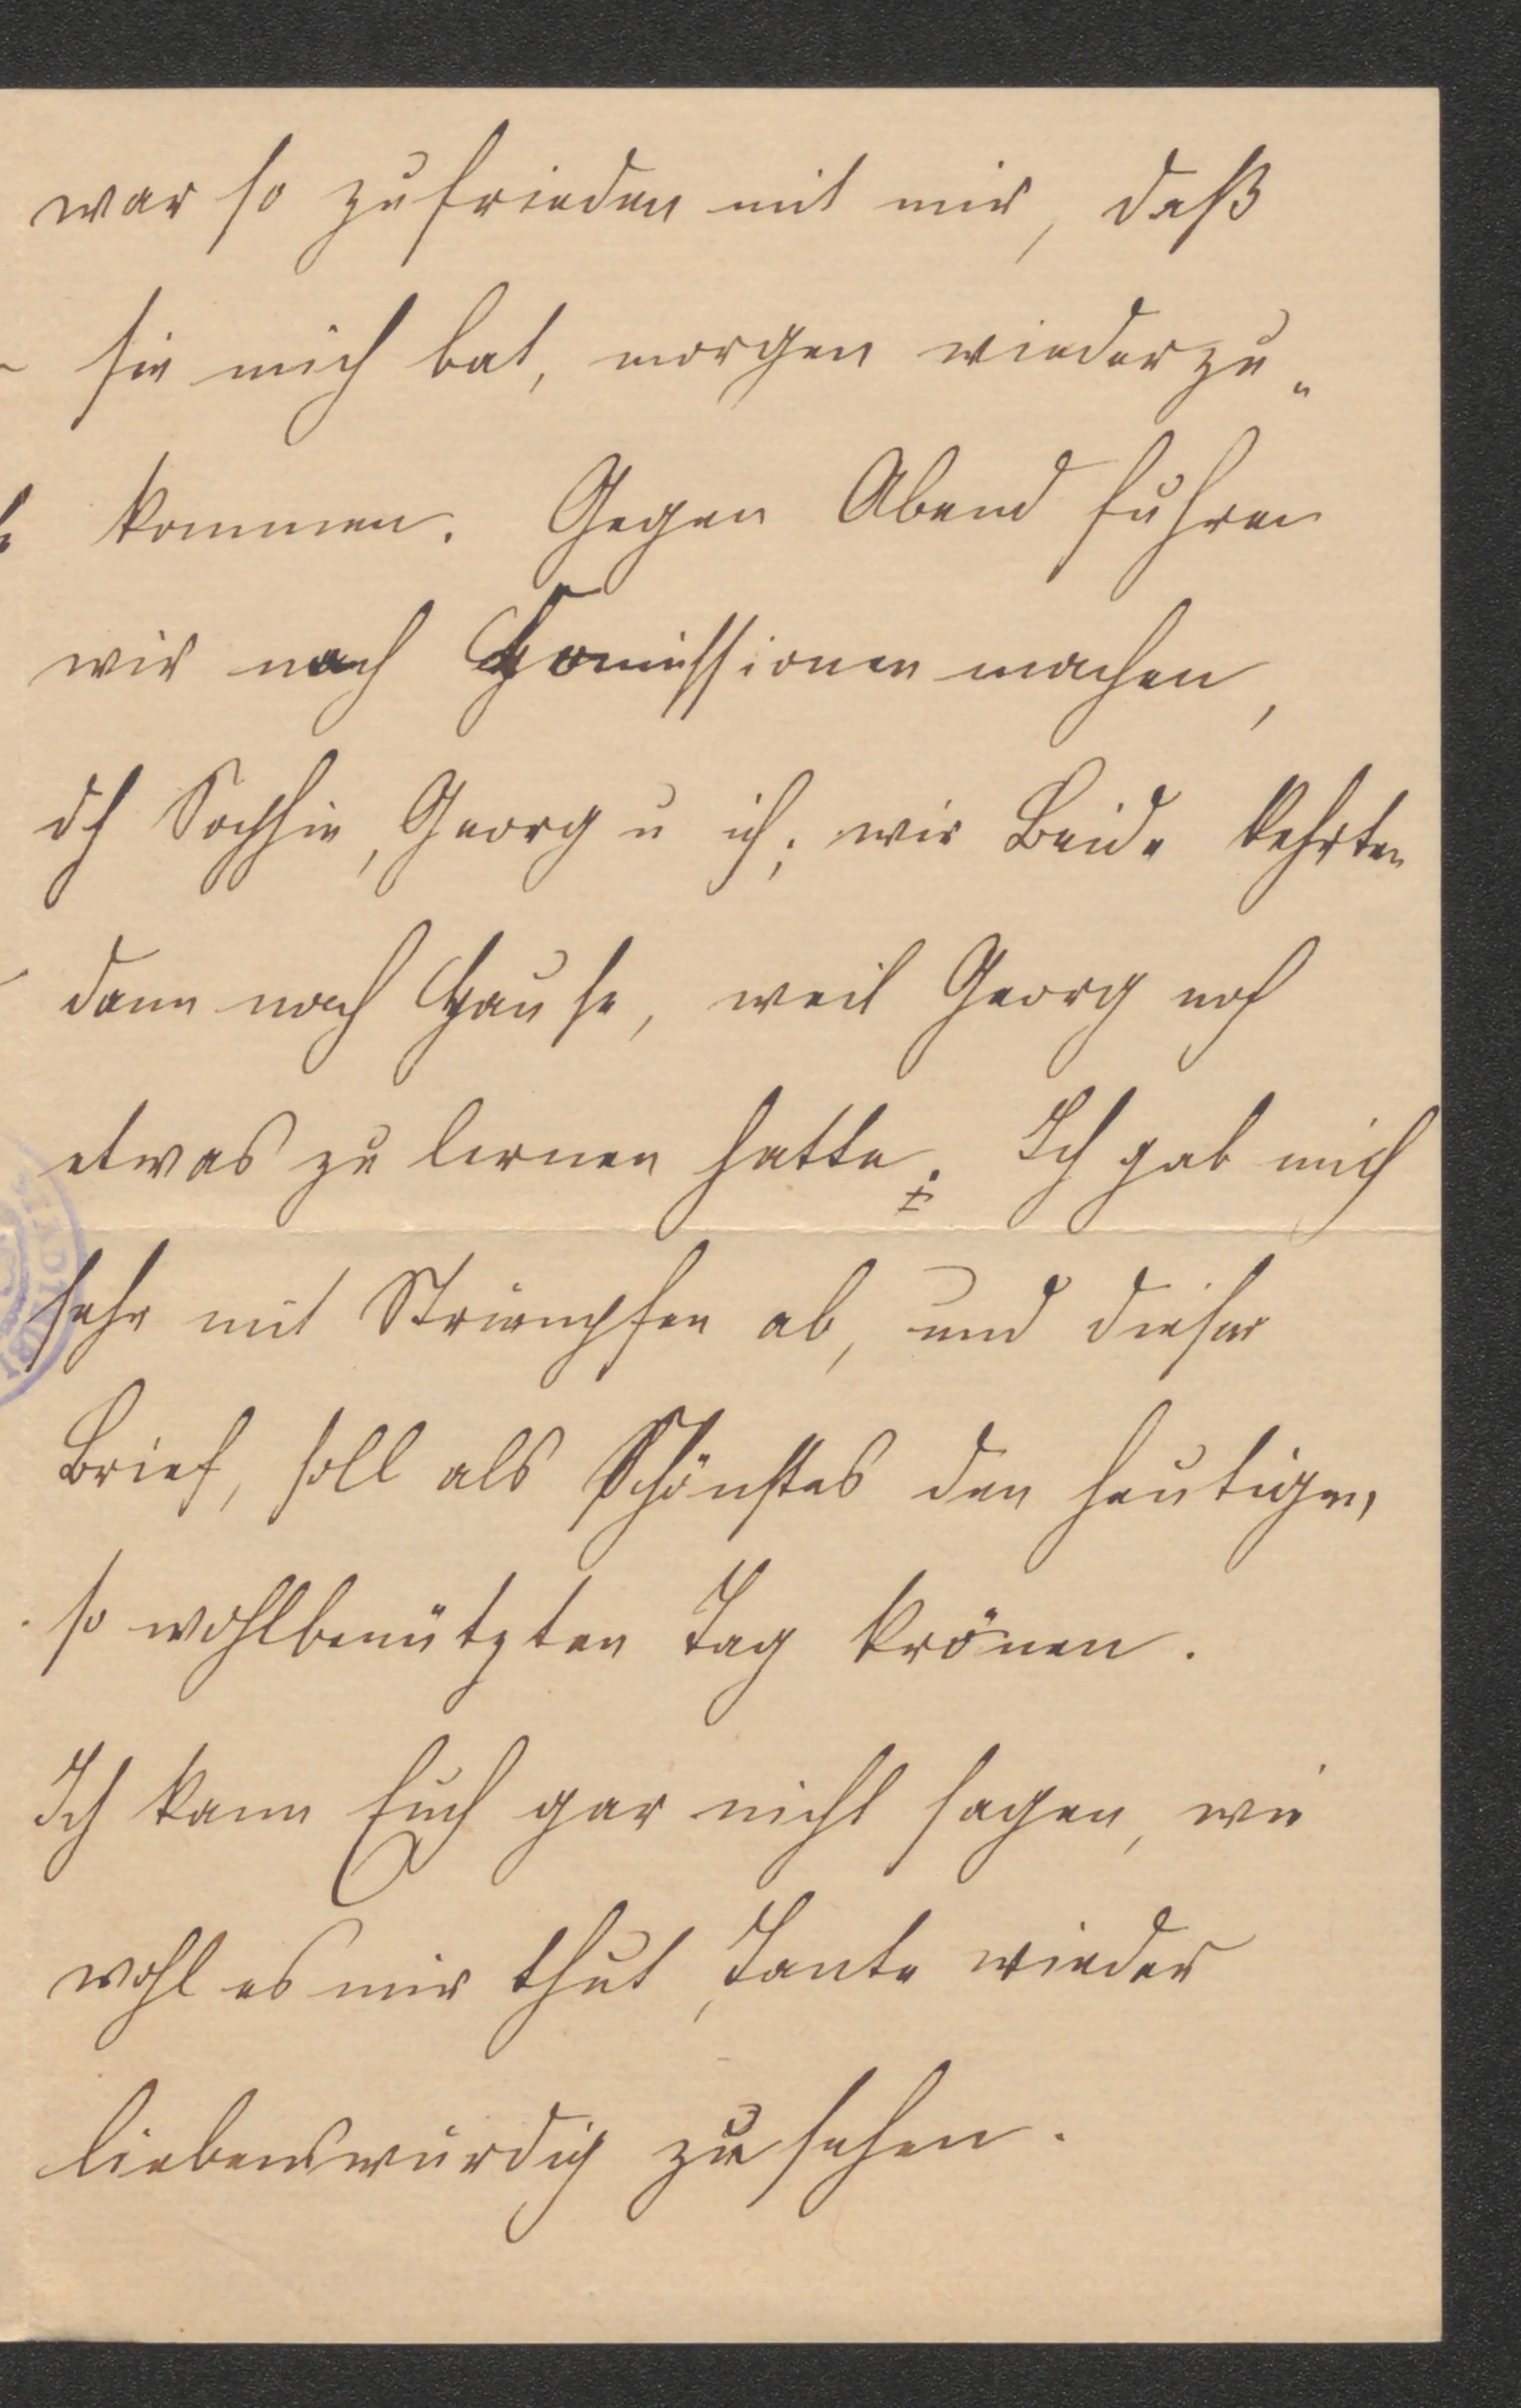 war so zufrieden mit mir, daß
sie mich bat, morgen wiederzu„
kommen. Gegen Abend fuhren
wir nach Comissionen machen,
dh Sophie, Georg u ich; wir Beide kehrten
dann nach Hause, weil Georg noch
etwas zu lernen hatte. Ich gab mich
sehr mit Strümpfen ab, und dieser
Brief, soll als Schönstes den heutigen,
so wohlbenützten Tag krönen.
Ich kann Euch gar nicht sagen, wie
wohl es mir thut, Tante wieder
liebenswürdig zu sehen.